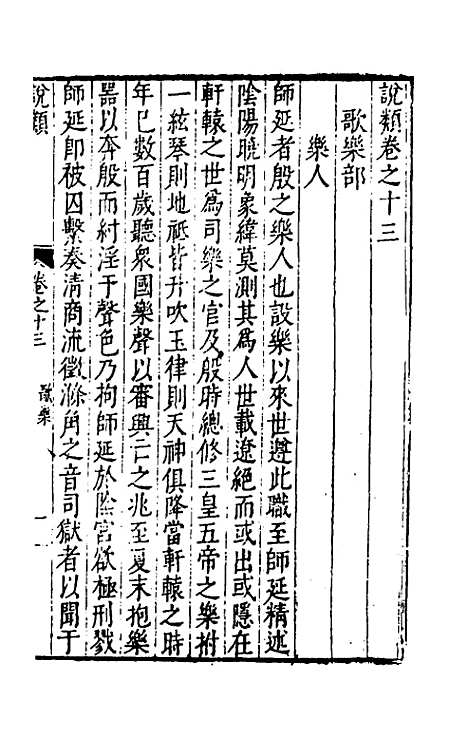 說類卷之十三
歌樂部
樂人
師延者殷之樂人也設樂以來世遵此職至師延精述
陰陽曉明象緯莫測其爲人世載遼絕而或出或隱在
軒轅之世爲司樂之官及殷時總修三皇五帝之樂拊
一絃琴則地祇皆升吹玉律則天神俱降當軒轅之時
年已數百歲聽衆國樂聲以審興亡之兆至夏末抱樂
器以奔殷而紂淫于聲色乃拘師延於陰宮欲極刑戮
師延卽被囚繫奏清商流徵滌角之音司獄者以聞于
說類
卷之十三
歌樂
一